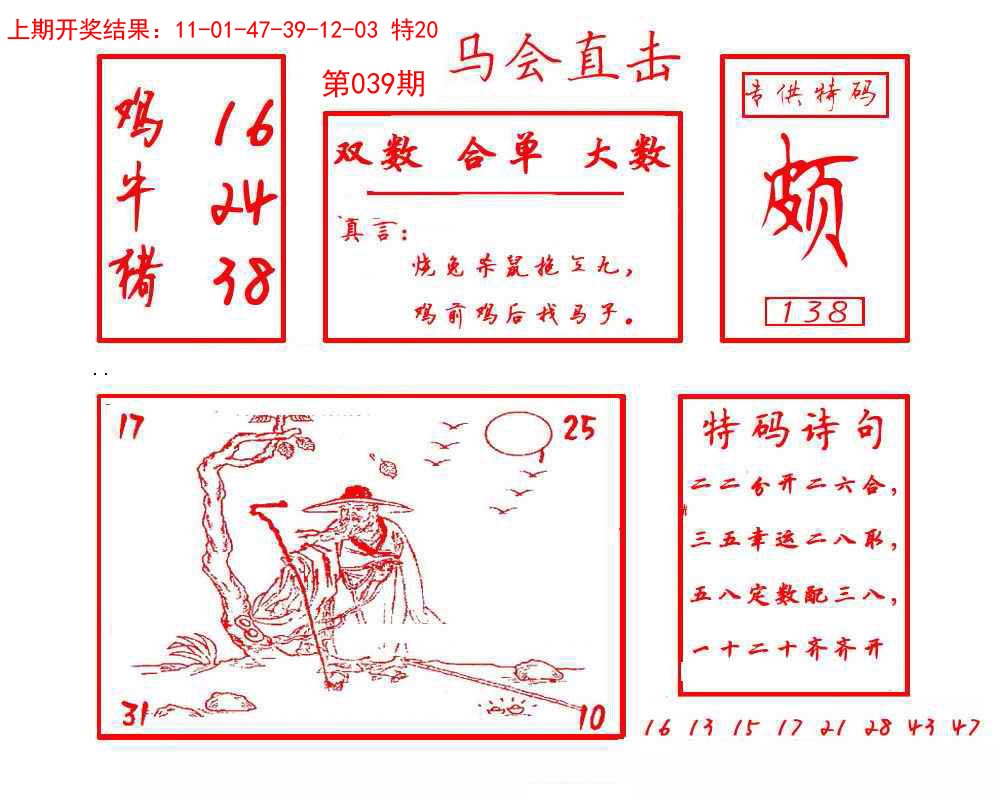 上期开奖结果：11-01-47-39-12-03 特20
马会直击
第039期
鸡 16
牛 24
猪 38
双数 合单 大数
真言：
烧兔杀鼠拖三九，
鸡前鸡后找马子。
专供特码
颇
138
17
25
31
10
特码诗句
二二分开二六合，
三五幸运二八取，
五八定数配三八，
一十二十齐齐开
16 13 15 17 21 28 43 47